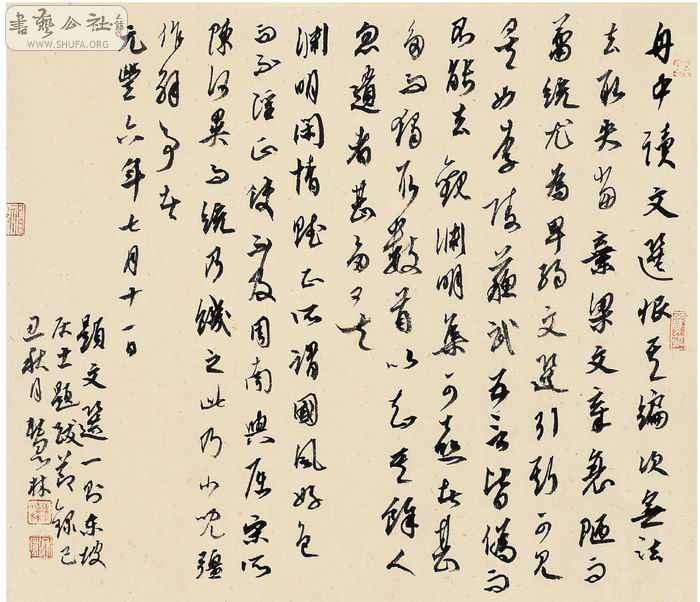 書藝公社
WWW.SHUFA.ORG
舟中讀文選恨其編次無法
去取失當齊梁文章衰陋而
蕭統尤為卑弱文選引斯可見
矣如李陵蘇武五言皆偽而
不能去觀淵明集可喜者甚
多而獨取數首以知其餘人
忽遺者甚多矣
淵明閑情賦正所謂國風好色
而不淫正使不及周南與屈宋所
陳何異而統乃譏之此乃小兒彊
作解事者
元豐六年七月十一日
題文選一則東坡
居士題跋節錄己
丑秋月慧林